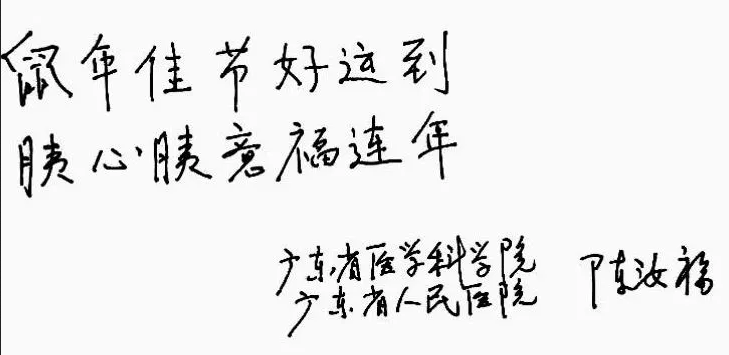 鼠年佳节好运到
胰心胰意福连年
广东省医学科学院
广东省人民医院 陈汝福